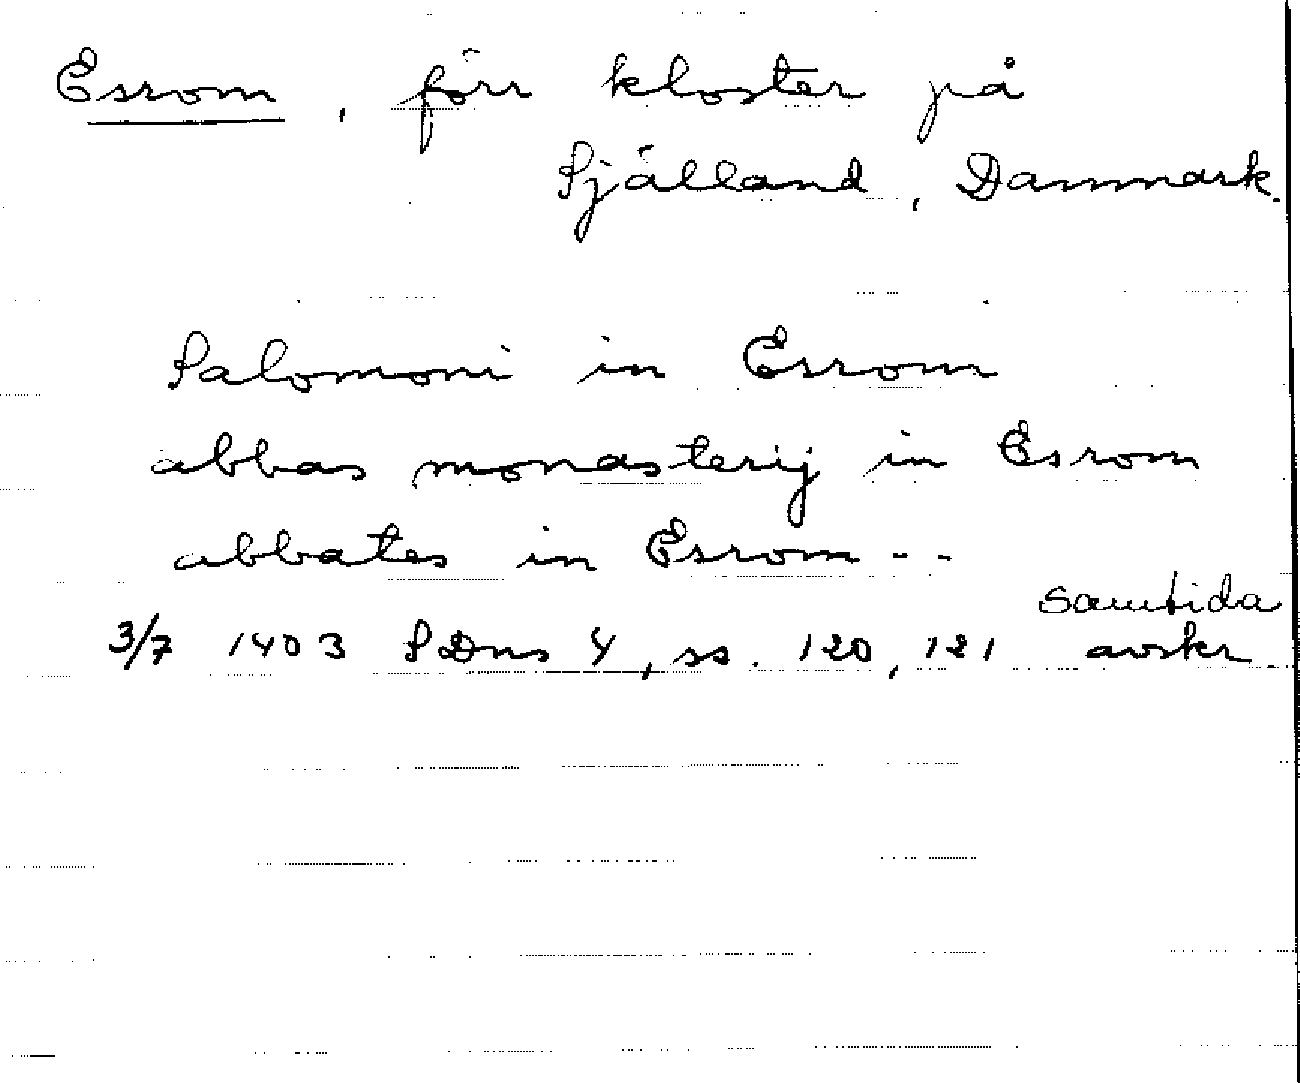 Essrom, förr kloster på
Själland, Danmark.
Salomoni in Esrom
abbas monasterij in Esrom
abbates in Esrom - -
samtida
3/7 1403 SDns 4, ss. 120, 121 avskr.